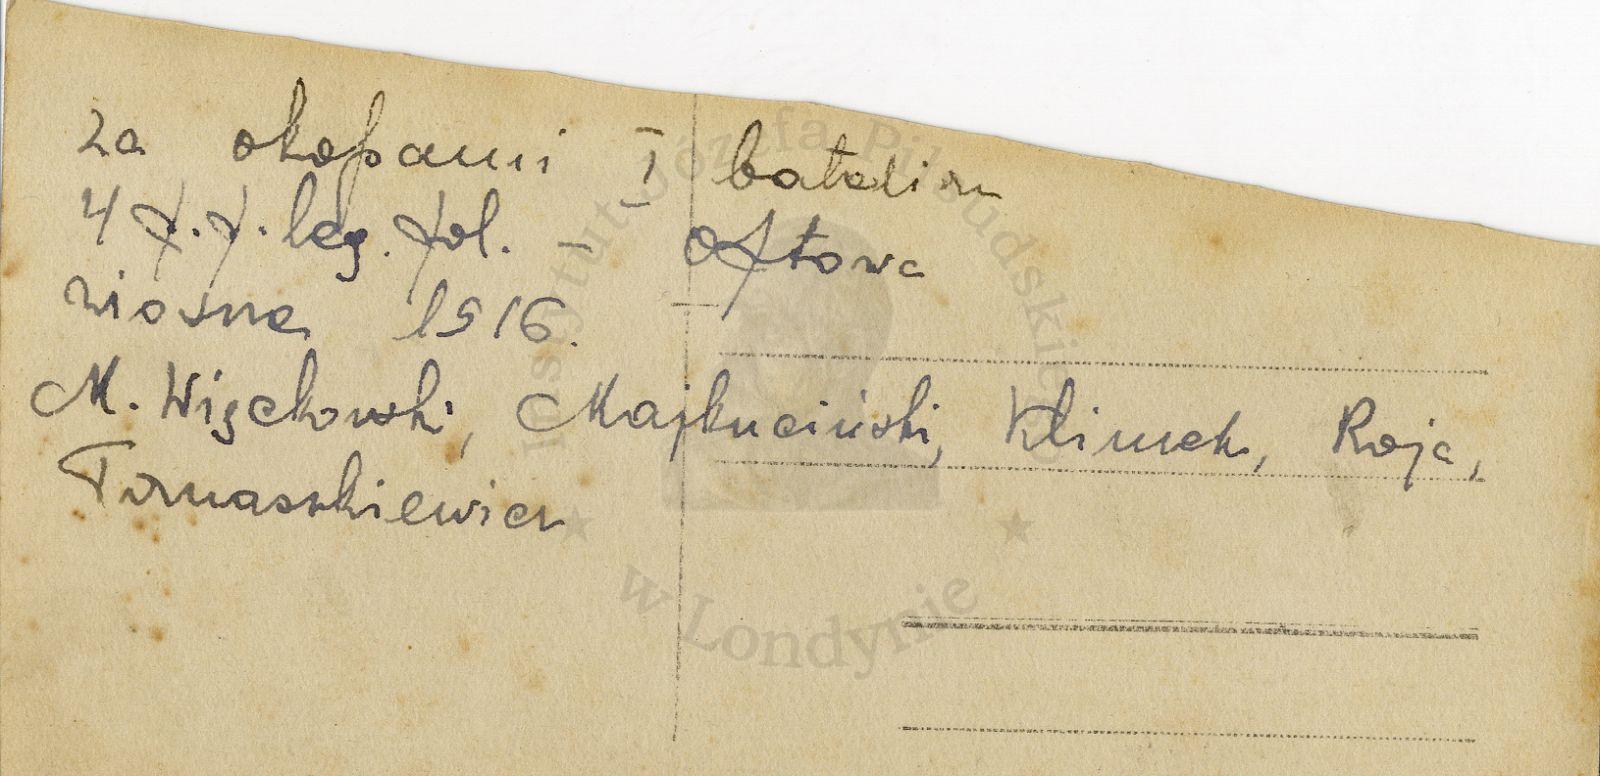 za okopami I batalion
4 p.p. leg. pol. – Optowa
wiosna 1916.
M. Więckowski, Majkuciński, Klimek, Roja,
Tomaszkiewicz
Instytut Józefa Piłsudskiego
w Londynie